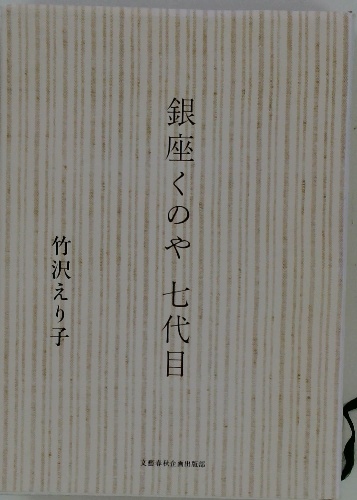 銀座くのや 七代目
竹沢えり子
文藝春秋企画出版部